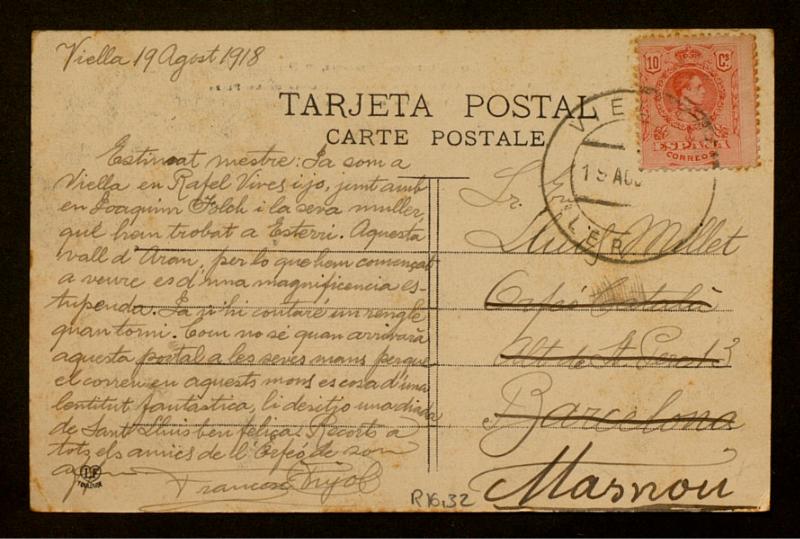 Viella 19 Agost 1918
TARJETA POSTAL
CARTE POSTALE
Estimat mestre: Ja som a
Viella en Rafel Vives i jo, junt amb
en Joaquim Folch i la seva muller,
qui hem trobat a Esterri. Aquesta
vall d'Aran, per lo que hem començat
a veure es d'una magnificencia es-
tupenda. Ja n'hi contaré un rengle
quan torni. Com no sé quan arrivarà
aquesta postal a les seves mans perque
el correu en aquests mons es cosa d'una
lentitut fantastica, li desitjo una diada
de Sant Lluis ben feliça. Recorts a
tots els amics de l'Orfeó de son
Francesc Pujol
10 Cs
CORREOS
19 AGO
Sr. En
Lluis Millet
Orfeó Català
Alt de St. Pere 13
Barcelona
Masnou
R16,32